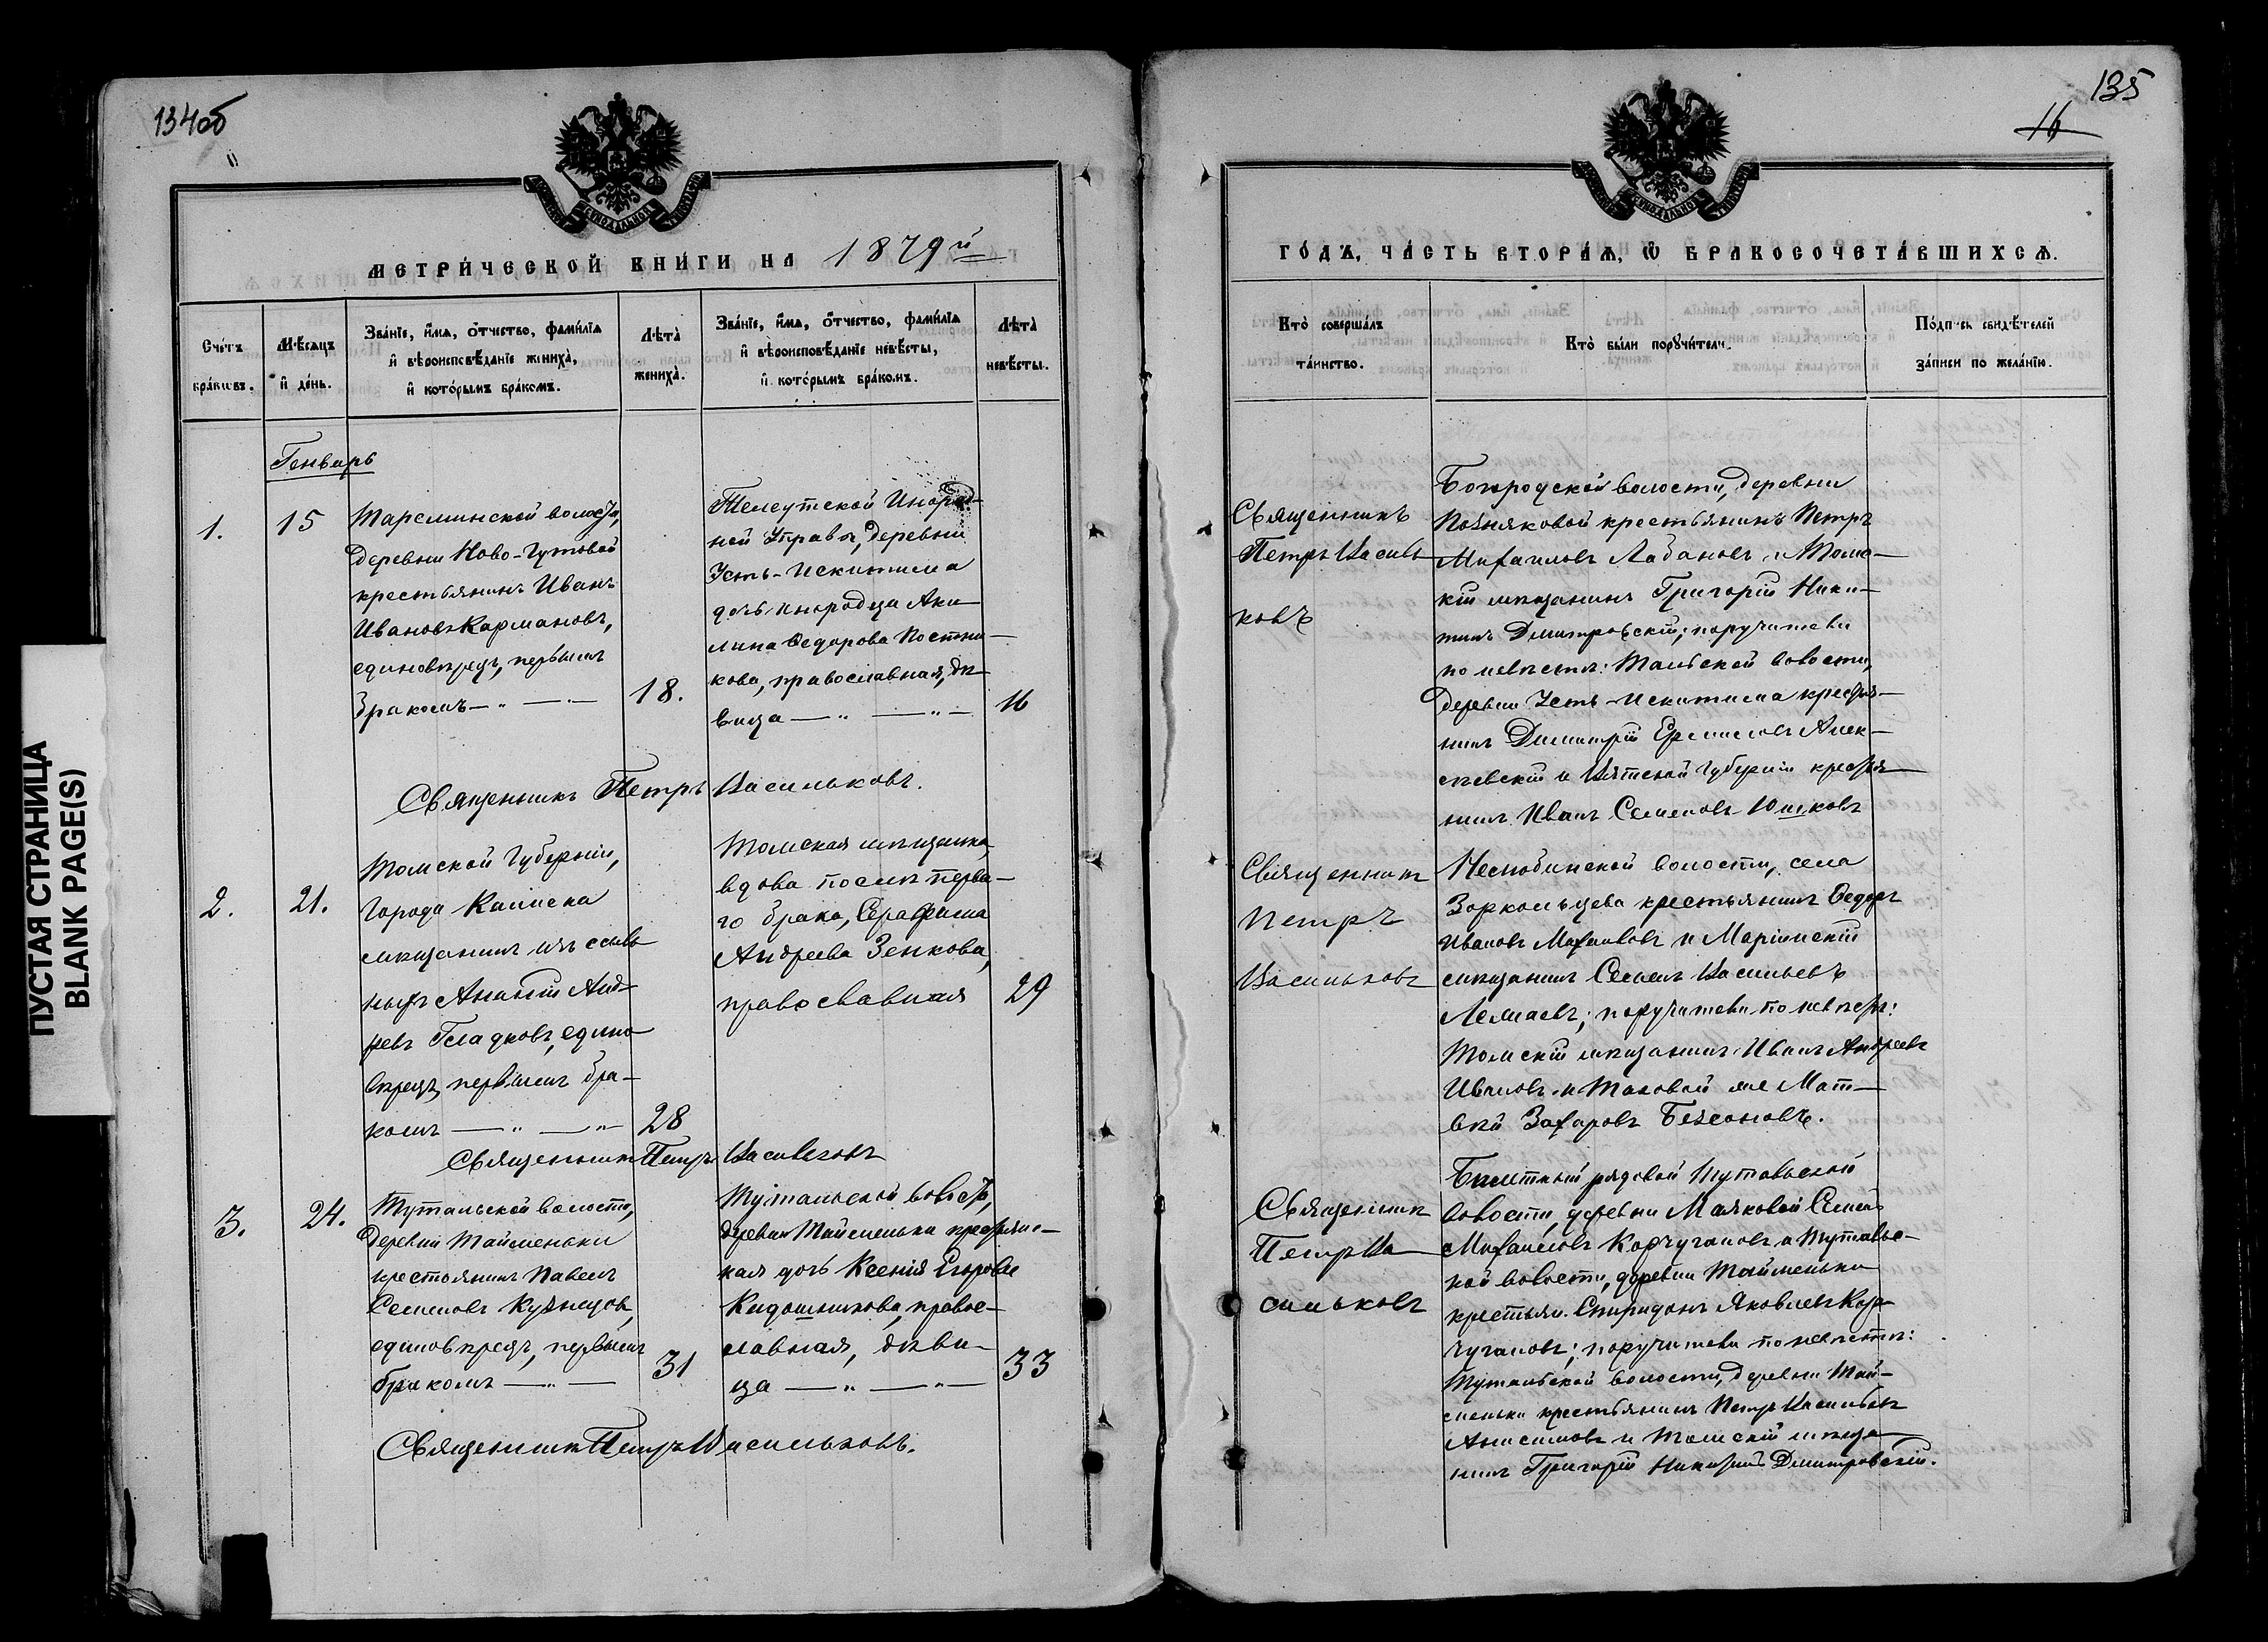 134об
135
16
ПУСТАЯ СТРАНИЦА
BLANK PAGE(S)
МЕТРИ́ЧЕСКОЙ КНИ́ГИ НА 1879й
Сче́тъ
бра́ковъ.
Мѣ́сяцъ
и де́нь.
Зва́нїе, и́мѧ, о́тчество, фами́лїѧ
и вѣроисповѣ́данїе жениха̀,
и кото́рымъ бра́комъ.
Лѣта̀
жениха̀.
Зва́нїе, и́мѧ, о́тчество, фами́лїѧ
и вѣроисповѣ́данїе невѣ́сты,
и кото́рымъ бра́комъ.
Лѣта̀
невѣ́сты.
Генварь
1.
15
Тарсминской волости,
деревни Ново-Гутовой
крестьянинъ Иванъ
Ивановъ Кармановъ,
единовѣрецъ, первымъ
бракомъ — „ — „ —
18.
Телеутской Инород-
ной Управы, деревни
Усть-Искитима
дочь инородца Аки-
лина Ѳедорова Постни-
кова, православная, дѣ-
вица — „ — „ —
16
Священникъ Петръ Васильковъ.
2.
21.
Томской Губерніи,
города Каинска
мѣщанинъ изъ ссыль
ныхъ Ананій Анд-
реевъ Гладковъ, едино
вѣрецъ, первымъ бра-
комъ — „ — „
28
Томская мѣщанка,
вдова послѣ перва-
го брака, Серафима
Андреева Зенкова,
православная
29
Священникъ Петръ Васильковъ
3.
24.
Тутальской волости,
деревни Тайменьки
крестьянинъ Павелъ
Семеновъ Кузнецовъ,
единовѣрецъ, первымъ
бракомъ — „ —
31
Тутальской волости,
деревни Тайменьки крестьянс-
кая дочь Ксенія Егорова
Кадошникова, правос-
лавная, дѣви-
ца — „ — „ —
33
Священникъ Петръ Васильковъ.
ГО́ДЪ, ЧА́СТЬ ВТОРА́Ѧ, Ѽ БРАКОСОЧЕТА́ВШИХСѦ.
Кто̀ соверша́лъ
та́инство.
Кто̀ бы́ли порꙋчи́тели.
По́дпись свидѣ́телей
за́писи по жела́нїю.
Священникъ
Петръ Василь
ковъ
Богородской волости, деревни
Позняковой крестьянинъ Петръ
Михаиловъ Лабановъ и Томс-
кій мѣщанинъ Григорій Ники-
тинъ Дмитровскій; поручители
по невѣстѣ: Тальской волости,
деревни Усть-Искитима кресть-
нинъ Димитрій Ермиловъ Алек-
сѣевскій и Вятской Губерніи крестья
нинъ Иванъ Семеновъ Юшковъ
Священникъ
Петръ
Васильковъ
Нелюбинской волости, села
Зоркольцева крестьянинъ Ѳедоръ
Ивановъ Михаиловъ и Маріинскій
мѣщанинъ Семенъ Васильевъ
; поручители по невѣстѣ:
Томскій мѣщанинъ Иванъ Андреевъ
Ивановъ и Таковой же Мат-
вѣй Захаровъ Безсоновъ.
Священникъ
Петръ Ва
сильковъ
Билетный рядовой Тутальской
волости, деревни Маяковой Семенъ
Михаиловъ Корчугановъ и Тутальс-
кой волости, деревни Тайменьки
крестьян. Спиридонъ Яковлевъ Кор-
чугановъ; поручители по невѣстѣ:
Тутальской волости, деревни Тай-
меньки крестьянинъ Петръ Васильевъ
Анисимовъ и Томскій мѣща
нинъ Григорій Никитинъ Дмитровскій.